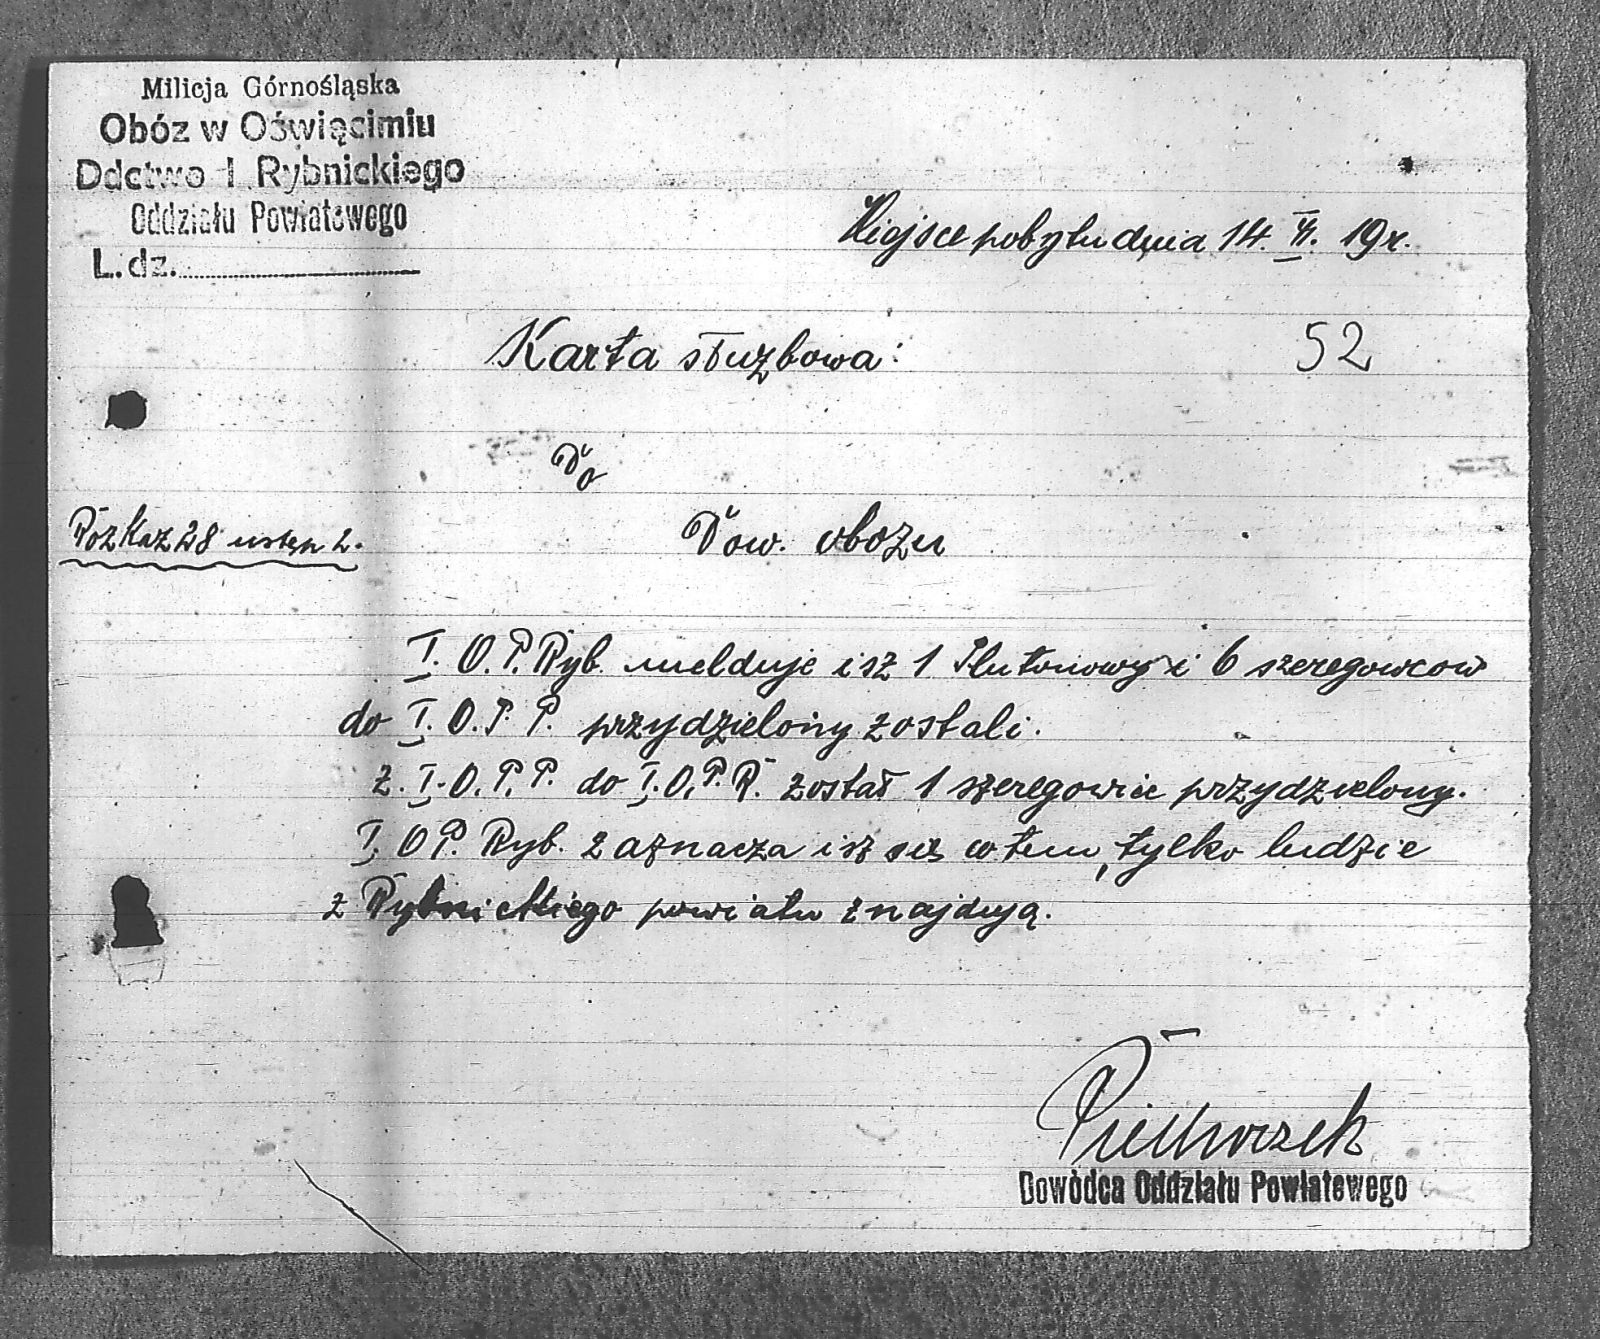 Milicja Górnośląska
Obóz w Oświęcimiu
Ddctwo I Rybnickiego
Oddziału Powiatowego
L. dz.
Miejsce pobytu dnia 14. VI. 19 r.
Karta służbowa:
52
Do
Rozkaz 28 ustęp 2.
Dow. obozu
I. O. P. Ryb. melduje isz 1 Plutonowy i 6 szeregowcow
do I. O. P. P. przydzielony zostali.
z. I. O. P. P. do I. O. P. R. został 1 szeregowiec przydzielony.
I. O P. Ryb. zaznacza isz się w tem, tylko ludzie
z Rybnickiego powiatu znajdują.
Dowòdca Oddziału Powiatowego